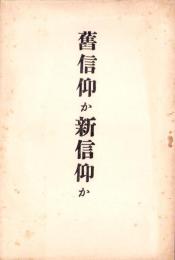 舊信仰か新信仰か